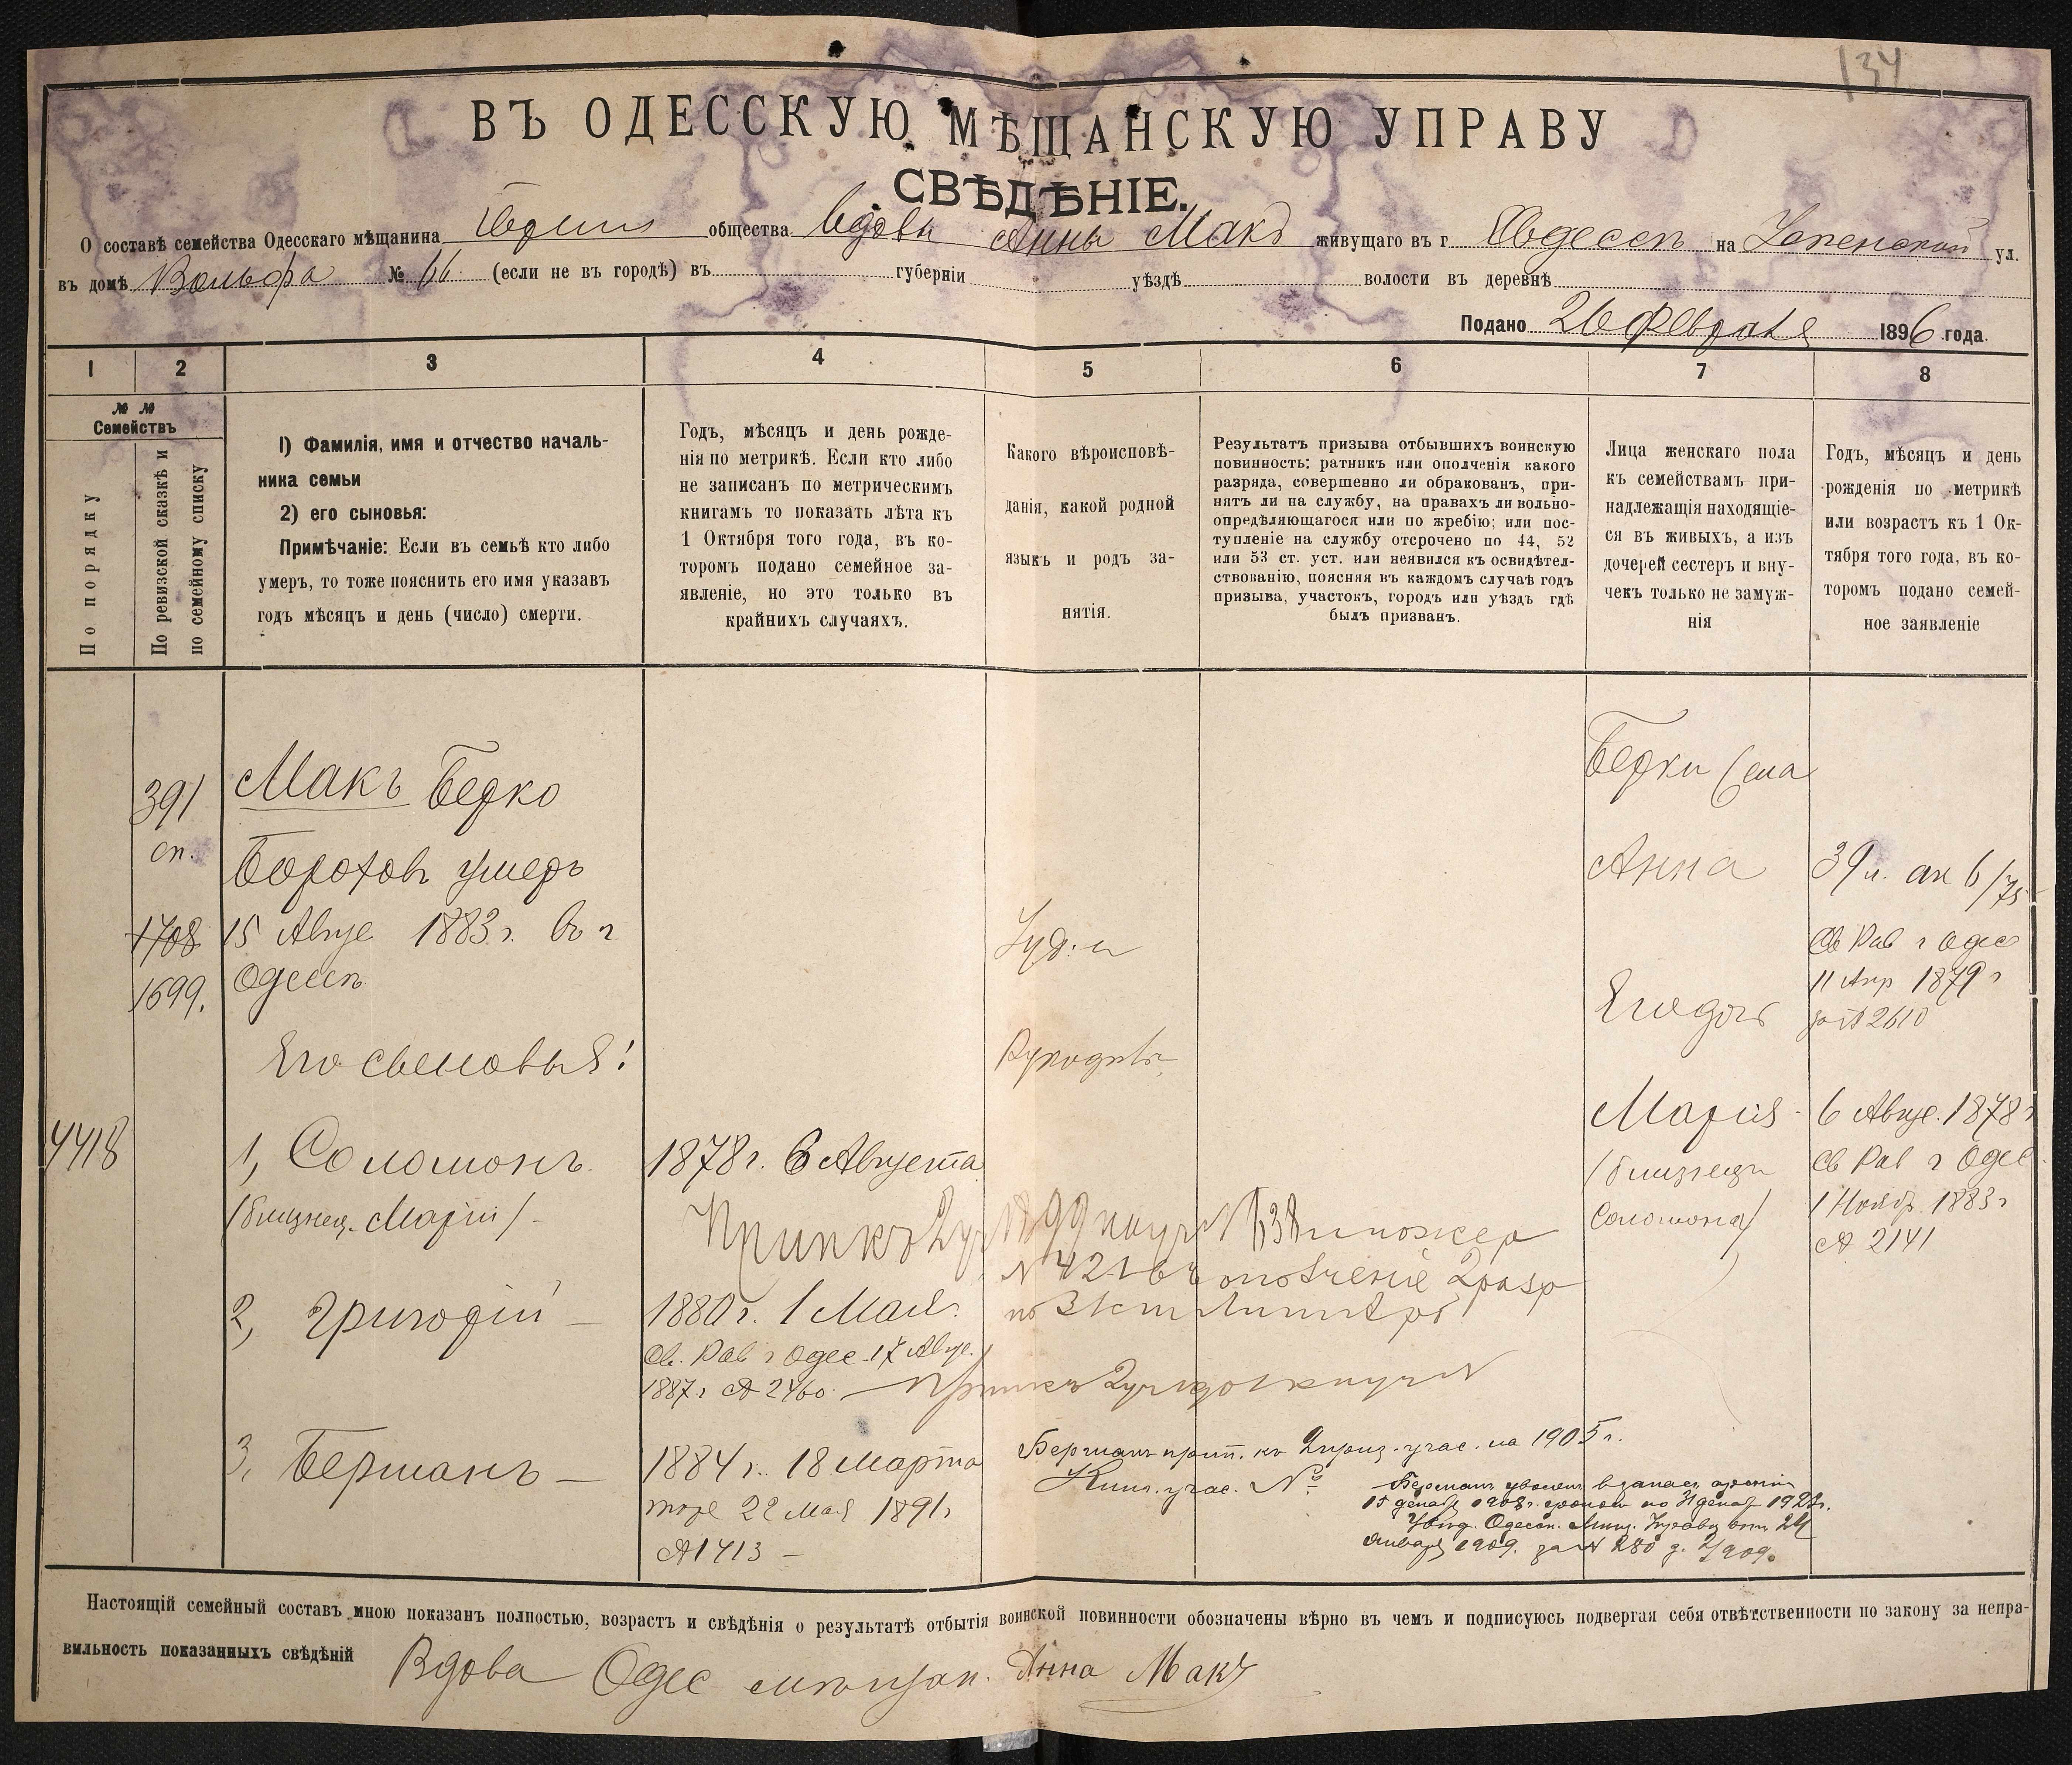 134
ВЪ ОДЕССКУЮ МѢЩАНСКУЮ УПРАВУ
СВѢДѢНІЕ.
О составѣ семейства Одесскаго мѣщанина общества вдовы Анны Макъ живущаго въ г Одессѣ на Успенской ул.
въ домѣ Вольфа № 66 (если не въ городѣ) въ губерніи уѣздѣ волости въ деревнѣ
Подано 26 Февраля 1896 года.
1 2 3 4 5 6 7 8
№ № Семействъ
По порядку
По ревизской сказкѣ и по семейному списку
1) Фамилія, имя и отчество началь-
ника семьи
2) его сыновья:
Примѣчаніе: Если въ семьѣ кто либо
умеръ, то тоже пояснить его имя указавъ
годъ мѣсяцъ и день (число) смерти.
Годъ, мѣсяцъ и день рожде-
нія по метрикѣ. Если кто либо
не записанъ по метрическимъ
книгамъ то показать лѣта къ
1 Октября того года, въ ко-
торомъ подано семейное за-
явленіе, но это только въ
крайнихъ случаяхъ.
Какого вѣроисповѣ-
данія, какой родной
языкъ и родъ за-
нятія.
Результатъ призыва отбывшихъ воинскую
повинность: ратникъ или ополченія какого
разряда, совершенно ли обракованъ, при-
нятъ ли на службу, на правахъ ли вольно-
опредѣляющагося или по жребію; или пос-
тупленіе на службу отсрочено по 44, 52
или 53 ст. уст. или неявился къ освидѣтел-
ствованію, поясняя въ каждомъ случаѣ годъ
призыва, участокъ, городъ или уѣздъ гдѣ
былъ призванъ.
Лица женскаго пола
къ семействамъ при-
надлежащія находящіе-
ся въ живыхъ, а изъ
дочерей сестеръ и вну-
чекъ только не замуж-
нія
Годъ, мѣсяцъ и день
рожденія по метрикѣ
или возрастъ къ 1 Ок-
тября того года, въ ко-
торомъ подано семей-
ное заявленіе
391
сп.
1708
1699.
4418
Макъ Берко
Бороховъ умеръ
15 Авгус 1883 г. въ г
Одессѣ
Его сыновья:
1, Соломонъ.
(близнец. Маріи) -
2, Григорій —
3, Берманъ —
1878 г. 6 Августа
1880 г. 1 Мая.
Св. Рав г Одес. 17 Авгус
1887 г № 2460
1884 г. 18 Марта
тоже 22 Мая 1891 г
№ 1413 —
Іуд:и
Рукодѣл.
Припис къ 2 уч 1899
№ 421 въ ополченіе 2 разр
Берманъ прип. къ 2 приз. учас. на 1905 г.
учас. №
Берманъ уволенъ въ запасъ арміи
15 декаб 1908 г. срокомъ по 31 декаб
Увѣд. Одесск. Управы отъ 24
Января 1909. за № 280 д. 2/909.
Берки
Анна
Его дочь
Марія -
(близнецъ
Соломона)
39 л.
Св Рав г Одес
11 Апр 1879 г
за № 2610
6 Авгус. 1878 г
Св Рав г Одес
1 Нояб. 1883 г
№ 2141
Настоящій семейный составъ мною показанъ полностью, возрастъ и свѣдѣнія о результатѣ отбытія воинской повинности обозначены вѣрно въ чемъ и подписуюсь подвергая себя отвѣтственности по закону за непра-
вильность показанныхъ свѣдѣній Вдова Одес мѣщан. Анна Макъ